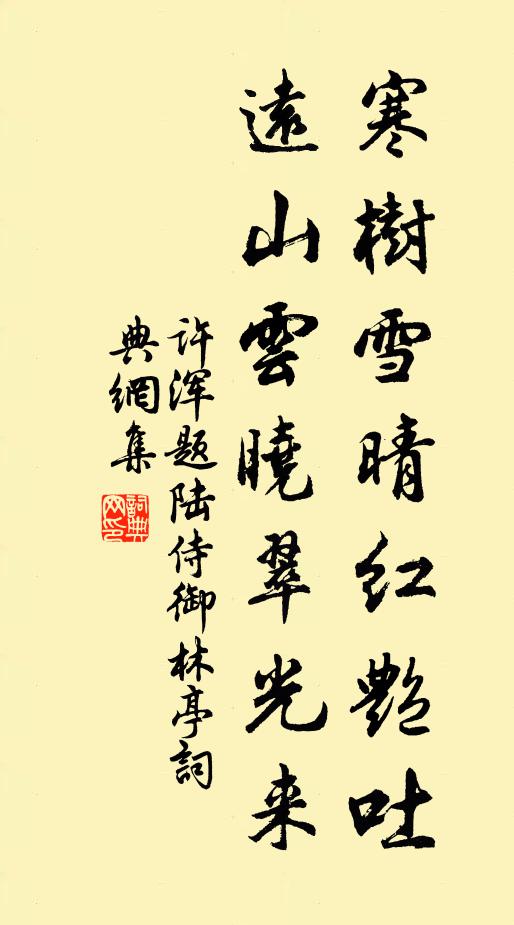 寒樹雪晴紅艷吐
遠山雲曉翠光来
许浑题陆侍御林亭詞
典網集
詞典
网印